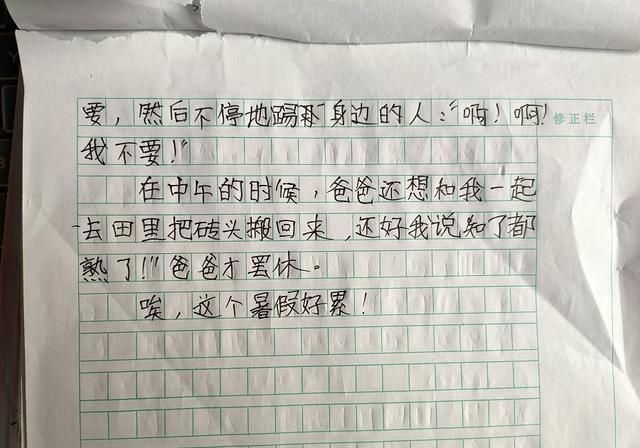 要，然后不停地踢那身边的人：“啊！啊！
修正栏
我不要！”
在中午的时候，爸爸还想和我一起
去田里把砖头搬回来，还好我说知了都
熟了！”爸爸才罢休。
唉，这个暑假好累！